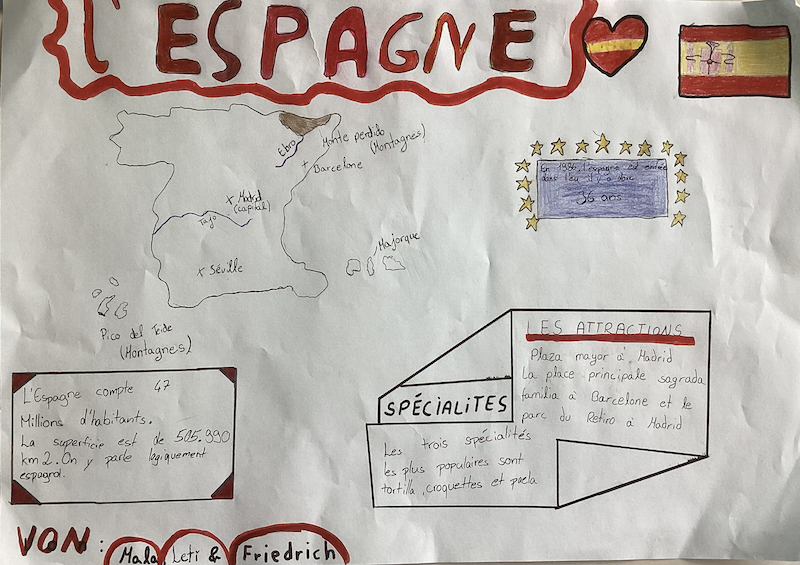 L'ESPAGNE
Ebro
Monte perdido
(Montagnes)
Barcelone
Madrid
(capital)
Tajo
Séville
Majorque
Pico del Teide
(Montagnes)
En 1986, l'espagne est entrée
dans l'eu il y a donc
36 ans
L'Espagne compte 47
Millions d'habitants.
La superficie est de 505.990
km2. On y parle logiquement
espagnol.
SPÉCIALITES
Les trois spécialités
les plus populaires sont
tortilla, croquettes et paela
LES ATTRACTIONS
Plaza mayor à Madrid
La place principale sagrada
familia à Barcelone et le
parc du Retiro à Madrid
VON: Mala, Leti & Friedrich